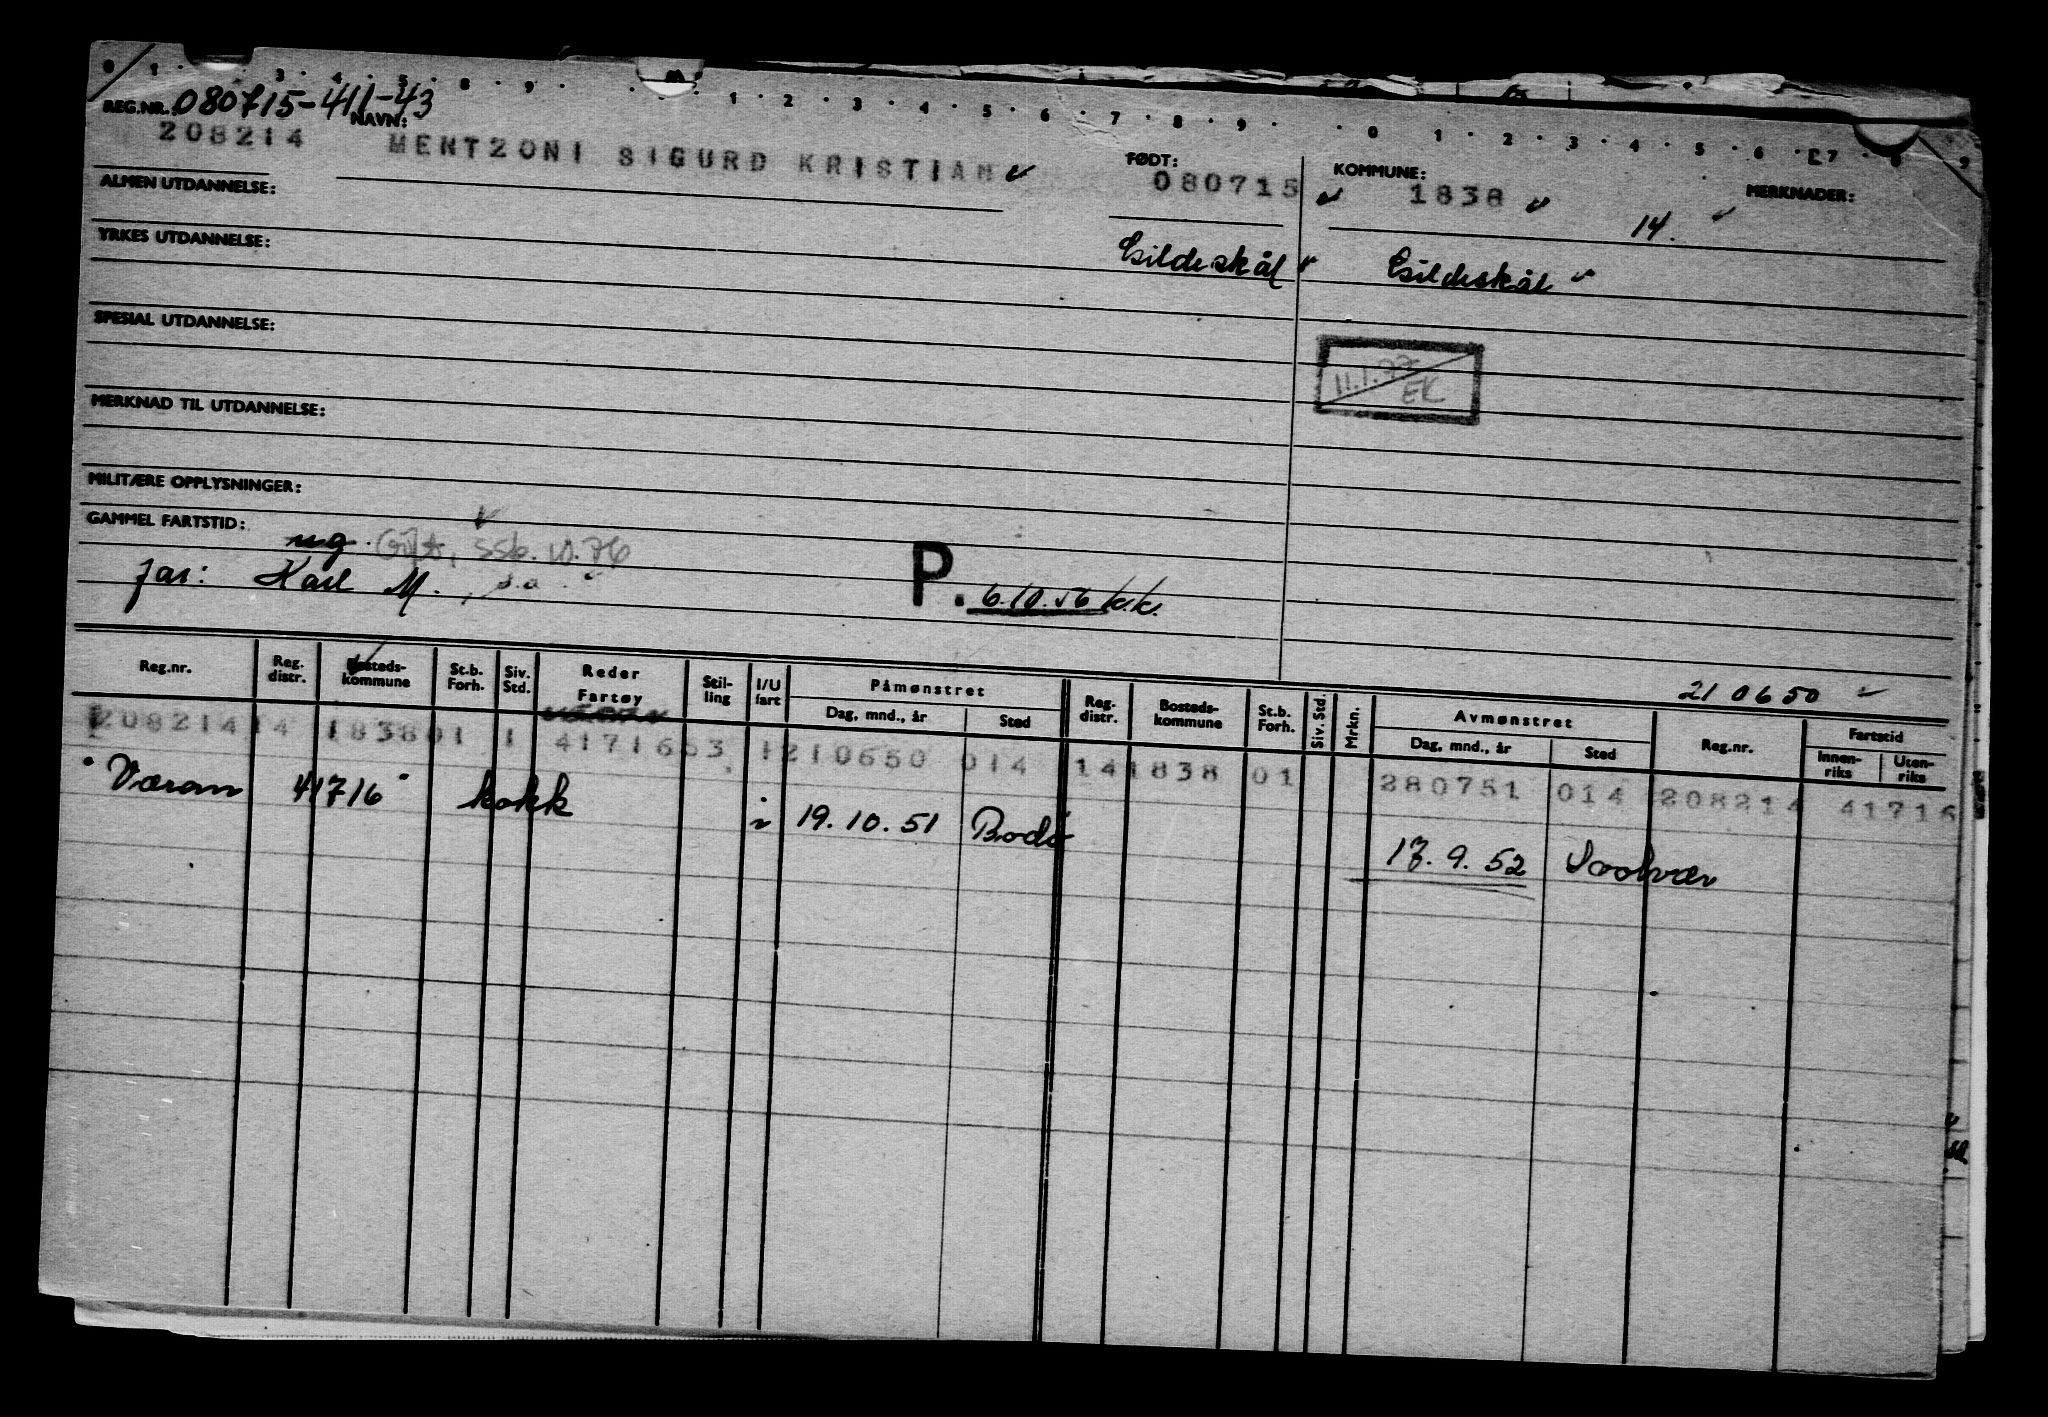 0 1 3 4 5 8 9 1 2 3 4 5 6 7 8 9 0 1 2 3 4 5 6 7 8 9
REG.NR.: 080715-411-43
NAVN:
208214 MENTZONI SIGURD KRISTIAN
FØDT:
080715
KOMMUNE:
1838
MERKNADER:
14.
ALMEN UTDANNELSE:
YRKES UTDANNELSE:
Gildeskål Gildeskål
SPESIAL UTDANNELSE:
11.1.73
EK
MERKNAD TIL UTDANNELSE:
MILITÆRE OPPLYSNINGER:
GAMMEL FARTSTID:
ug. Gift, SSB. 10.76
far: Karl M. , s.a.
P. 6.10.56 k.k.
21 06 50
Reg.nr. Reg. distr. Bosteds-kommune St.b. Forh. Siv. Std. Reder Fartøy Stil-ling I/U fart Påmønstret Dag, mnd., år Sted Reg. distr. Bosteds-kommune St.b. Forh. Siv. Std. Mrkn. Avmønstret Dag, mnd., år Sted Reg.nr. Fartstid Innen-riks Uten-riks
208214 14 1838 01 1 41716 53 1 210650 014 14 1838 01 280751 014 208214 41716
Væran 41716 kokk i 19.10.51 Bodø 17.9.52 Svolvær